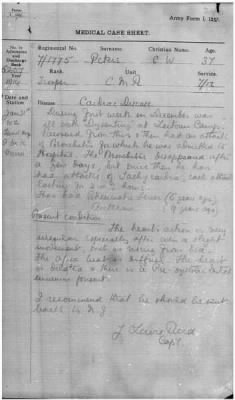 Army Form I. 1237.
MEDICAL CASE SHEET.
No. in Admission and Discharge Book
Regimental No.
Surname.
Christian Name.
Age.
7/1775 Peters C W 37
Rank.
Unit.
Service.
Trooper C.M.R. 7/12
Year
Disease Cardiac Disease
During first week in December was
at Zeitoun Camp.
Recovered from this & then had an attack
of Bronchitis for which he was admitted to
Hospital. The Bronchitis disappeared after
a few days, but since then he has
had attacks of Tachycardia, each attack
lasting 2 or 3 hours.
Has had Rheumatic Fever (6 years ago)
Present condition
The heart's action is very
irregular especially after even a slight
movement, such as moving from bed.
The Apex beat is diffuse. The heart
is dilated & there is a systolic
murmur present.
I recommend that he should be sent
back to N.Z.
Capt.